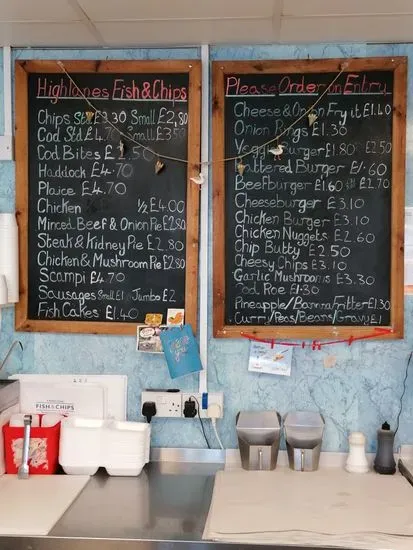 Highlanes Fish & Chips
Chips Std £3.30 Small £2.80
Cod Std £4.70 Small £3.50
Cod Bites £2.50
Haddock £4.70
Plaice £4.70
Chicken ½ £4.00
Minced Beef & Onion Pie £2.80
Steak & Kidney Pie £2.80
Chicken & Mushroom Pie £2.80
Scampi £4.70
Sausages Small £1 Jumbo £2
Fish Cakes £1.40
Please Order on Entry
Cheese & Onion Fryit £1.40
Onion Rings £1.30
Burger £1.80 £2.50
Battered Burger £1.60
Beefburger £1.60 £2.70
Cheeseburger £3.10
Chicken Burger £3.10
Chicken Nuggets £2.60
Chip Butty £2.50
Cheesy Chips £3.10
Garlic Mushrooms £3.30
Cod Roe £1.30
Pineapple/Banana/Fritter £1.30
Curry/Peas/Beans/Gravy £1
FISH & CHIPS